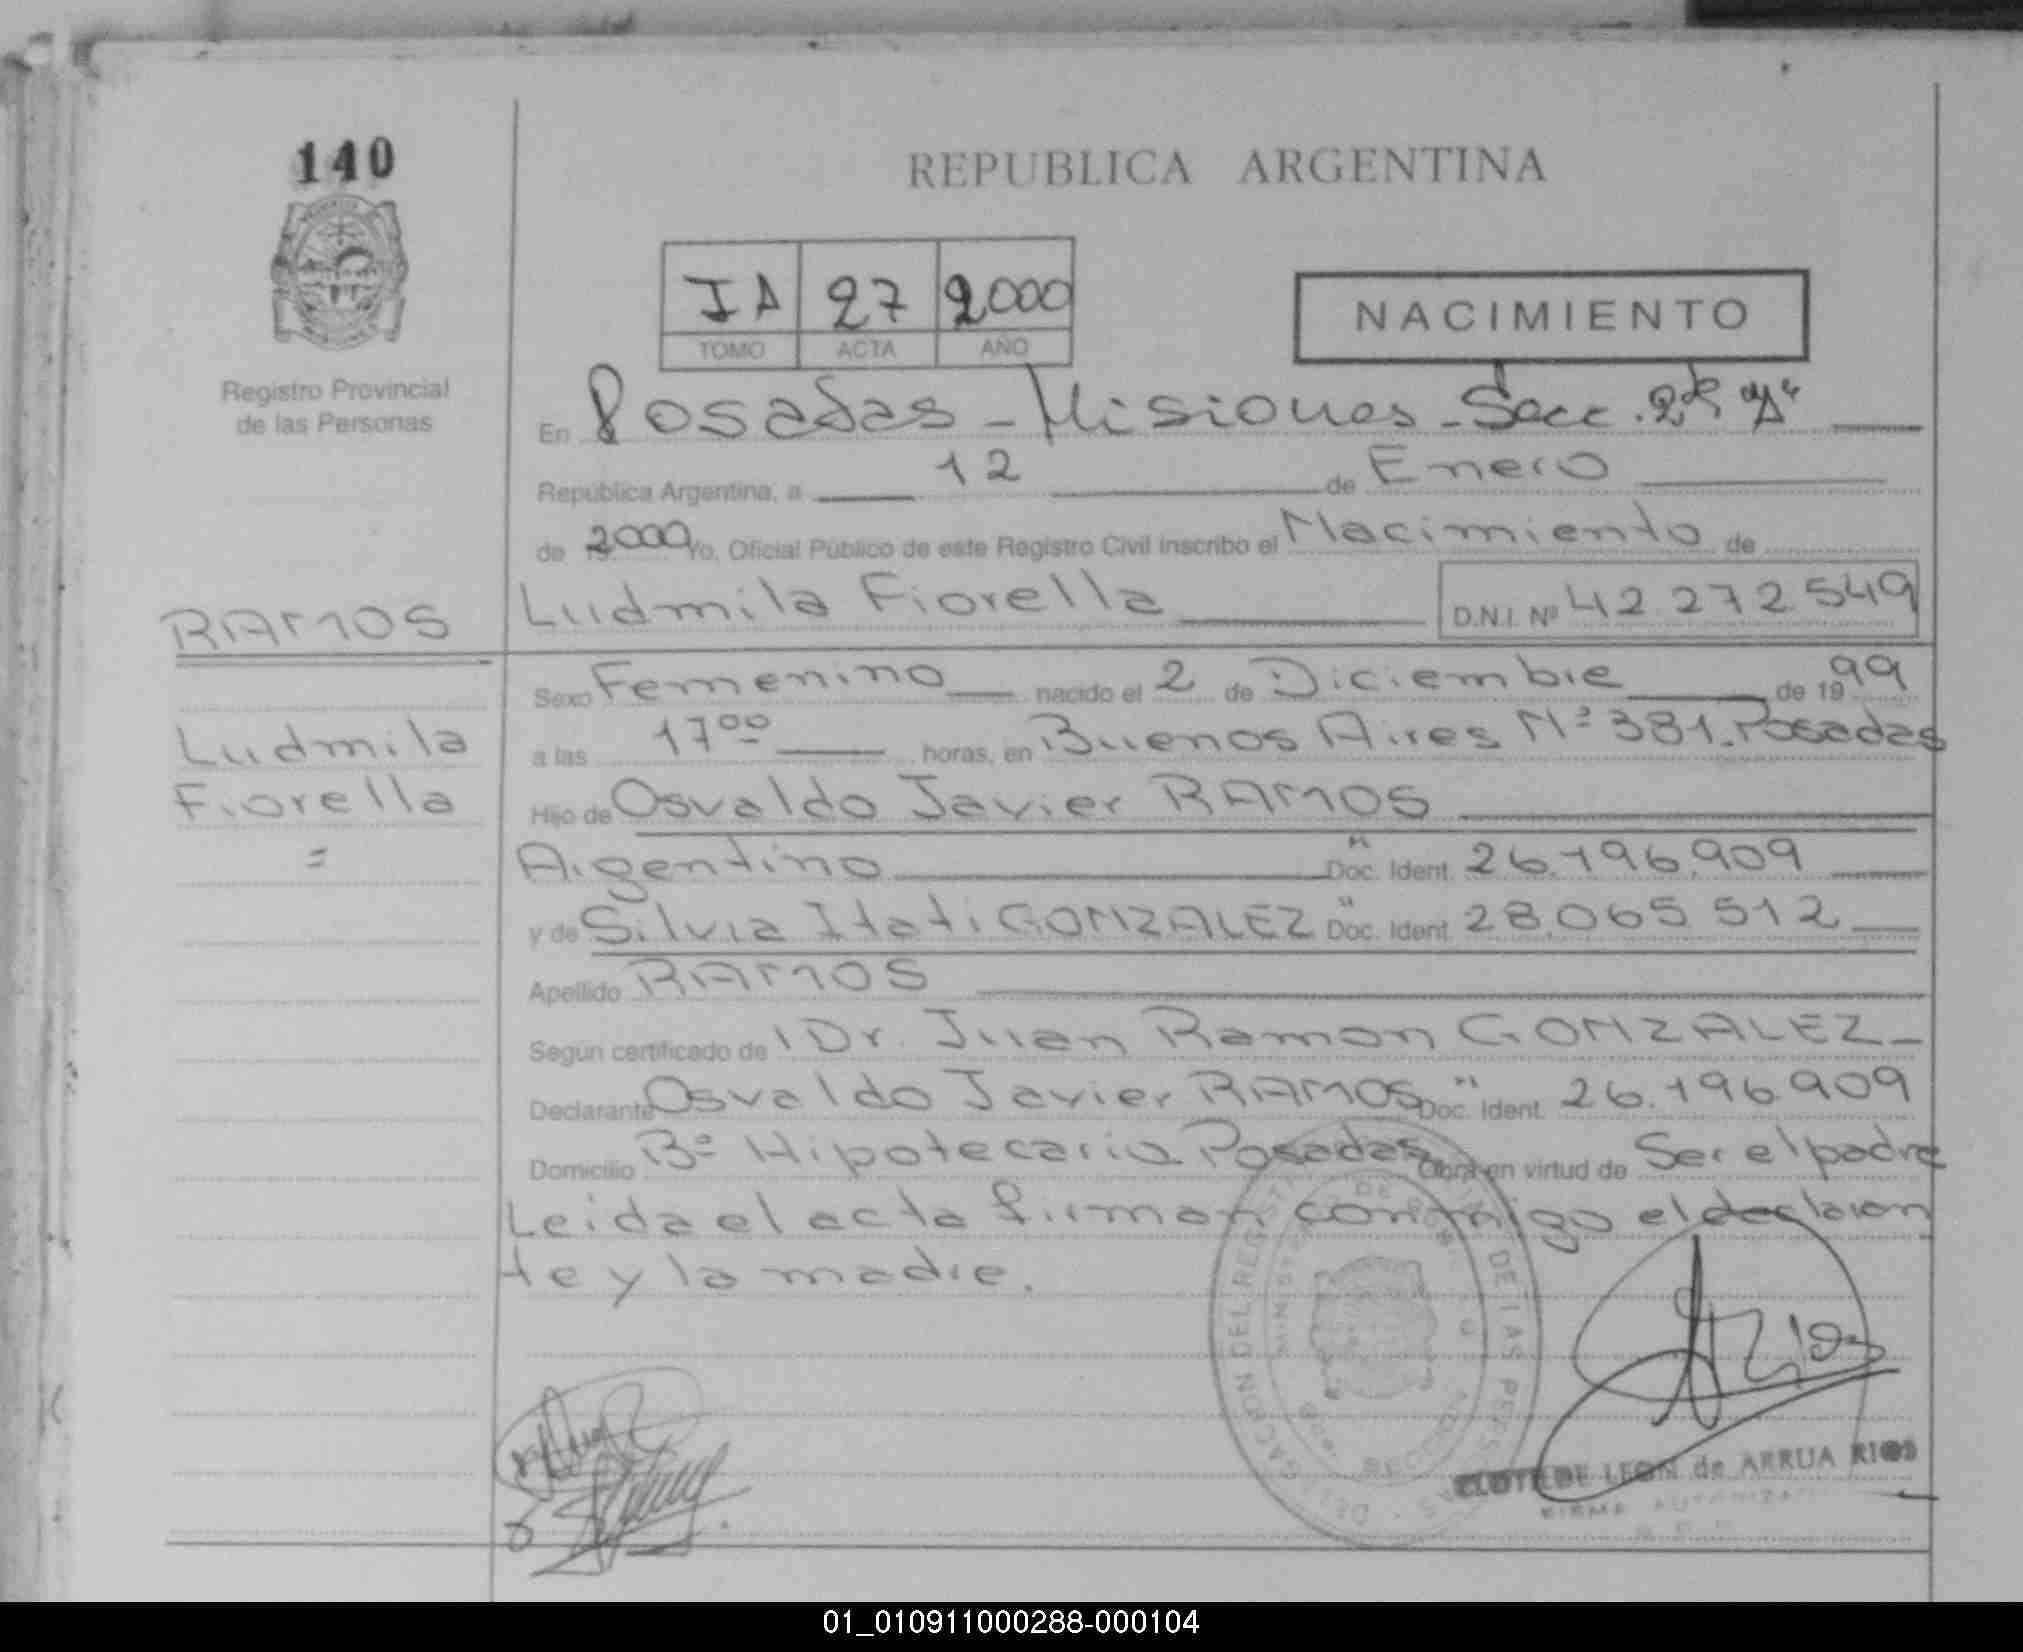 140
REPUBLICA ARGENTINA
IA 27 2000
TOMO ACTA AÑO
NACIMIENTO
Registro Provincial
de las Personas
En Posadas - Misiones - Secc. 2da "A"
República Argentina, a 12 de Enero
de 2000 Yo, Oficial Público de este Registro Civil inscribo el Nacimiento de
RAMOS
Ludmila Fiorella D.N.I. Nº 42.272.549
Sexo Femenino nacido el 2 de Diciembre de 1999
Ludmila
a las 17 00 horas, en Buenos Aires Nº 381. Posadas
Fiorella
Hijo de Osvaldo Javier RAMOS
=
Argentino Doc. Ident. 26.196.909
y de Silvia Itati GONZALEZ Doc. Ident. 28.065.512
Apellido RAMOS
Según certificado de l Dr. Juan Ramon GONZALEZ -
Declarante Osvaldo Javier RAMOS Doc. Ident. 26.196.909
Domicilio Bº Hipotecario Posadas Obra en virtud de Ser el padre
Leida el acta firman conmigo el declaran
te y la madre.
CLOTILDE LEON de ARRUA RIOS
FIRMA AUTORIZADA
01_010911000288-000104